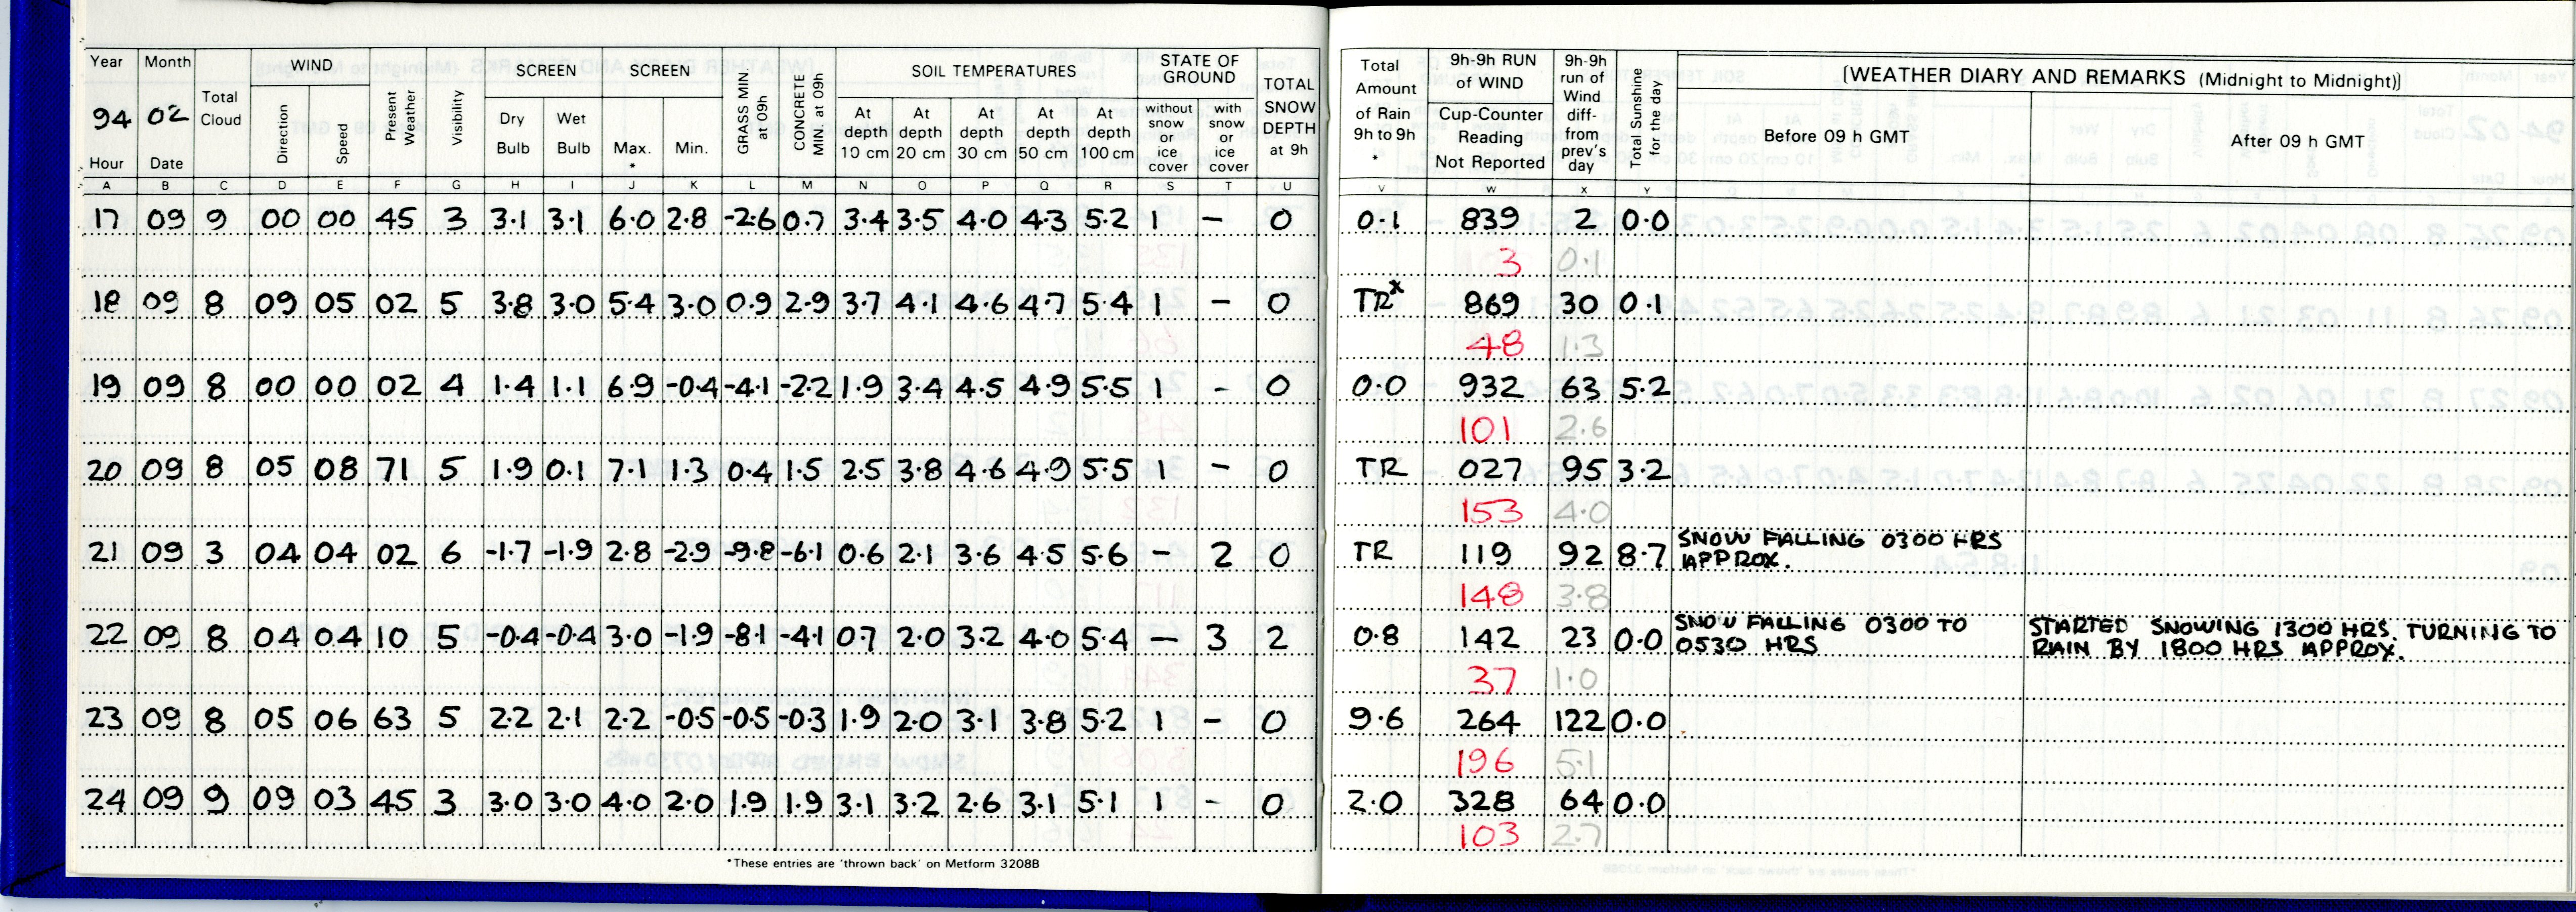 Year Month Total Cloud WIND Direction Speed Present Weather Visibility SCREEN Dry Bulb Wet Bulb SCREEN Max. * Min. GRASS MIN. at 09h CONCRETE MIN. at 09h SOIL TEMPERATURES At depth 10 cm At depth 20 cm At depth 30 cm At depth 50 cm At depth 100 cm STATE OF GROUND without snow or ice cover with snow or ice cover TOTAL SNOW DEPTH at 9h Total Amount of Rain 9h to 9h * 9h-9h RUN of WIND Cup-Counter Reading Not Reported 9h-9h run of Wind diff- from prev's day Total Sunshine for the day [WEATHER DIARY AND REMARKS (Midnight to Midnight)] Before 09 h GMT After 09 h GMT
94 02
Hour Date
A B C D E F G H I J K L M N O P Q R S T U V W X Y
17 09 9 00 00 45 3 3.1 3.1 6.0 2.8 -2.6 0.7 3.4 3.5 4.0 4.3 5.2 1 – 0 0.1 839 2 0.0
3 0.1
18 09 8 09 05 02 5 3.8 3.0 5.4 3.0 0.9 2.9 3.7 4.1 4.6 4.7 5.4 1 – 0 TRx 869 30 0.1
48 1.3
19 09 8 00 00 02 4 1.4 1.1 6.9 -0.4 -4.1 -2.2 1.9 3.4 4.5 4.9 5.5 1 - 0 0.0 932 63 5.2
101 2.6
20 09 8 05 08 71 5 1.9 0.1 7.1 1.3 0.4 1.5 2.5 3.8 4.6 4.9 5.5 1 – 0 TR 027 95 3.2
153 4.0
21 09 3 04 04 02 6 -1.7 -1.9 2.8 -2.9 -9.8 -6.1 0.6 2.1 3.6 4.5 5.6 – 2 0 TR 119 92 8.7 SNOW FALLING 0300 HRS
APPROX.
148 3.8
22 09 8 04 04 10 5 -0.4 -0.4 3.0 -1.9 -8.1 -4.1 0.7 2.0 3.2 4.0 5.4 – 3 2 0.8 142 23 0.0 SNOW FALLING 0300 TO STARTED SNOWING 1300 HRS. TURNING TO
0530 HRS RAIN BY 1800 HRS APPROX.
37 1.0
23 09 8 05 06 63 5 2.2 2.1 2.2 -0.5 -0.5 -0.3 1.9 2.0 3.1 3.8 5.2 1 – 0 9.6 264 122 0.0
196 5.1
24 09 9 09 03 45 3 3.0 3.0 4.0 2.0 1.9 1.9 3.1 3.2 2.6 3.1 5.1 1 - 0 2.0 328 64 0.0
103 2.7
*These entries are 'thrown back' on Metform 3208B